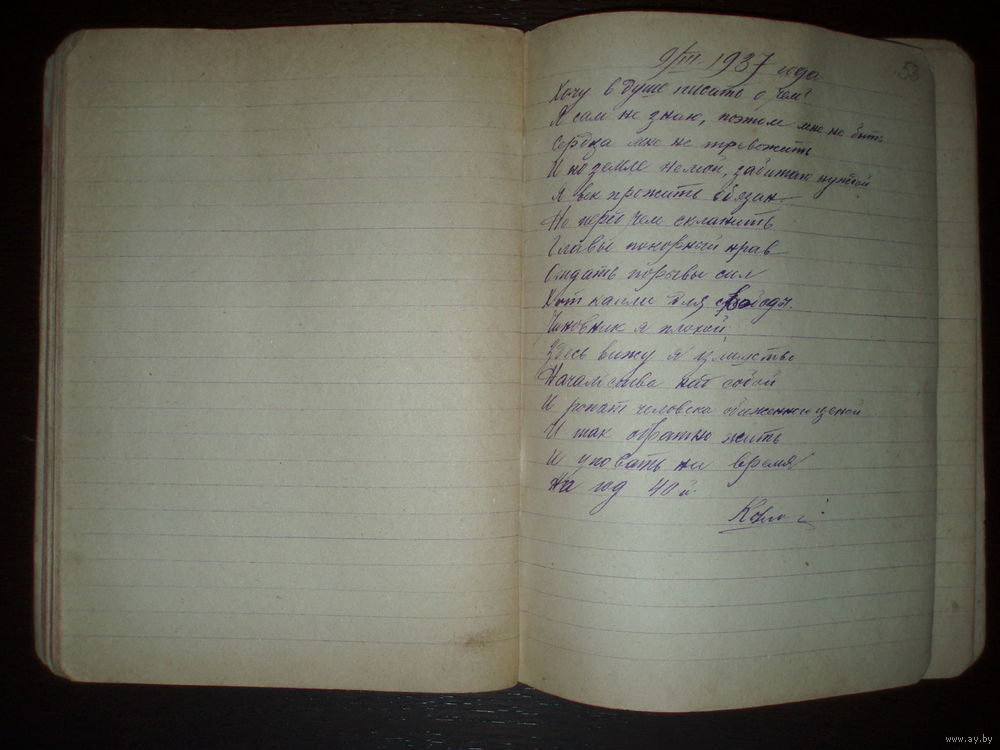 53
9/III 1937 года
Хочу в душе писать о чем?
Я сам не знаю, поэтом мне не быть
Сердца мне не тревожить
И на земле немой, забитою нуждой
Я век прожить обязан
Но перед чем склонить
Главы покорный нрав
Отдать порывы сил
Хот капли для свободы.
Чиновник я плохой
Здесь вижу я
Начальства над собой
И ропат человека обиженной ценой
И так обратно жить
И уповать на время
На год 40й
www.ay.by